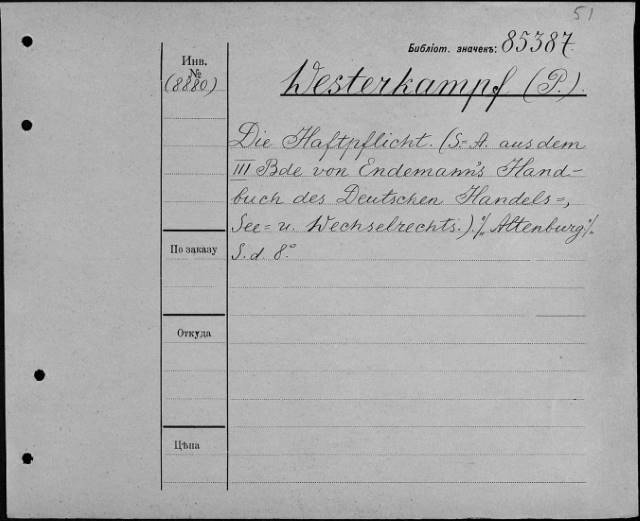 51
Библіот. значекъ: 85387
Инв.
№
(8880)
Westerkampf (P.).
Die Haftpflicht. (S.-A. aus dem
III Bde von Endemann's Hand-
buch des Deutschen Handels=,
See= u. Wechselrechts.) ·/. Altenburg ·/.
S. d. 8.°
По заказу
Откуда
Цѣна